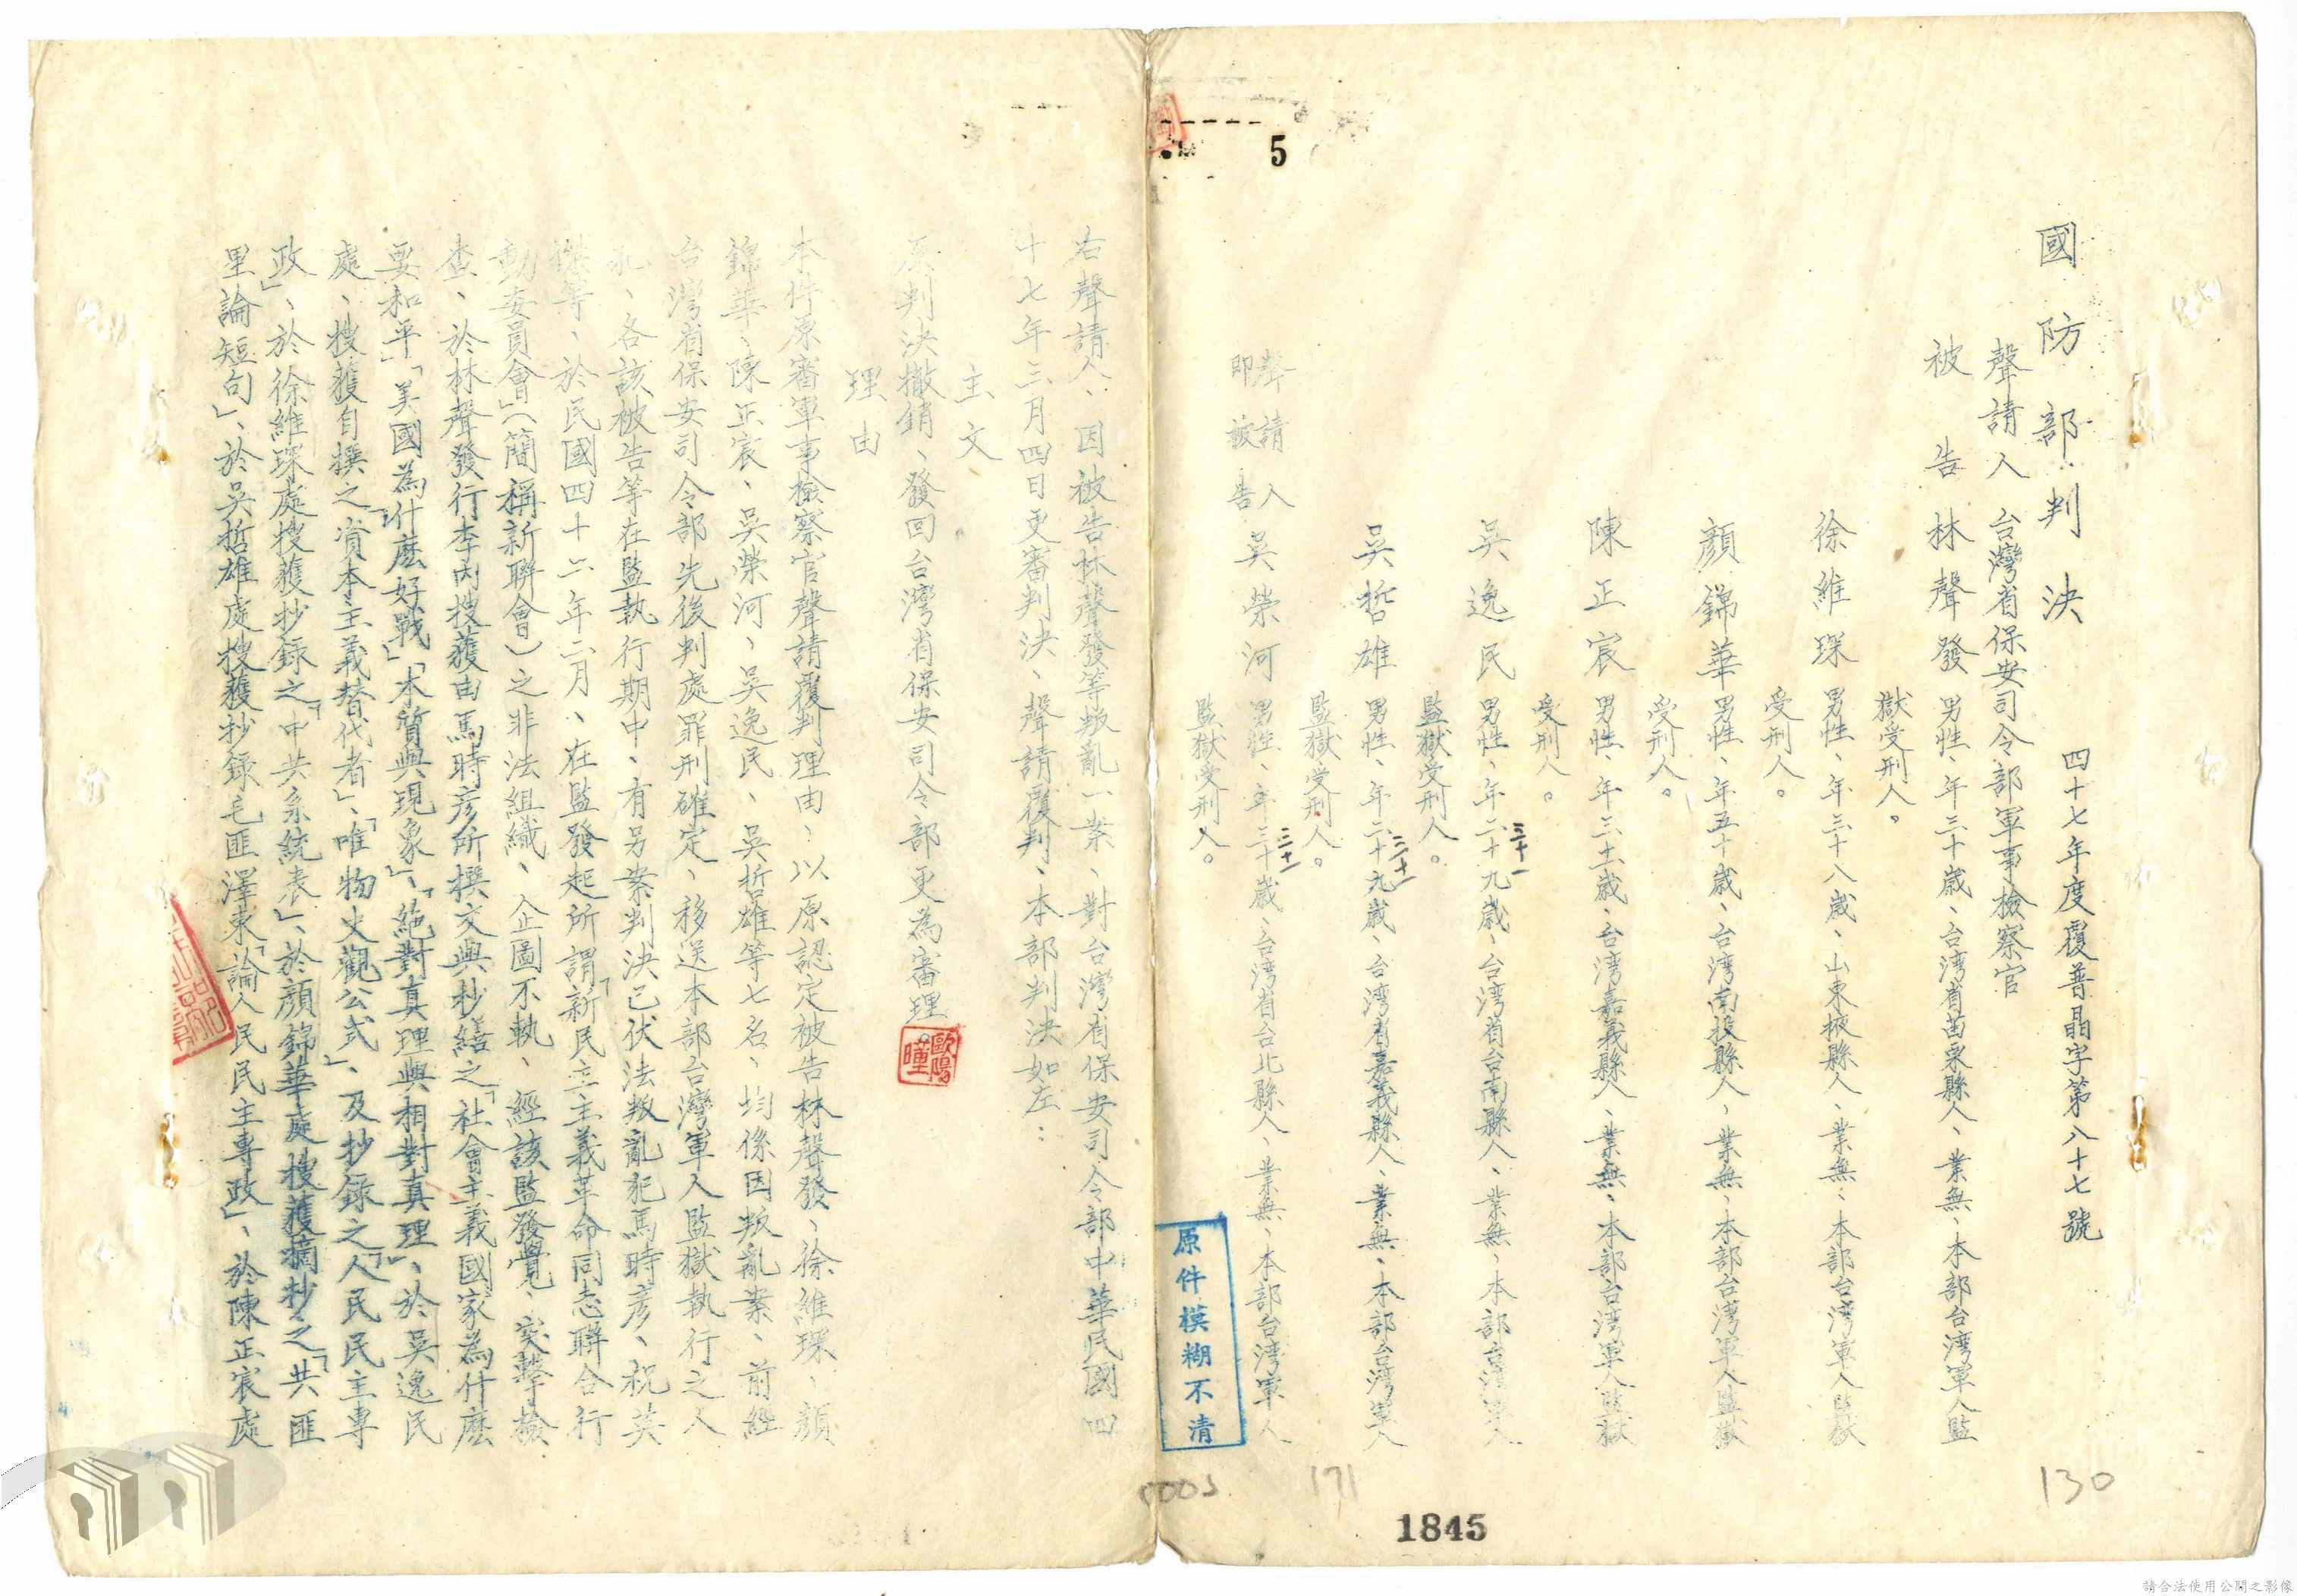 國防部判決　四十七年度覆普晶字第八十七號
聲請人　台灣省保安司令部軍事檢察官
被告　林聲發　男性、年三十歲、台湾省苗栗縣人、業無、本部台湾軍人監
獄受刑人。
徐維琛　男性、年三十八歲、山東掖縣人、業無、本部台湾軍人監獄
受刑人。
顏錦華　男性、年五十歲、台湾南投縣人、業無、本部台湾軍人監獄
受刑人。
陳正宸　男性、年三十二歲、台湾嘉義縣人、業無、本部台湾軍人監獄
受刑人。
吳逸民　男性、年二十九歲、台湾省台南縣人、業無、本部台湾軍人
三十一
監獄受刑人。
吳哲雄　男性、年二十九歲、台湾省嘉義縣人、業無、本部台湾軍人
三十一
監獄受刑人。
聲請人
即被告　吳榮河　男性、年三十歲、台湾省台北縣人、業無、本部台湾軍人
三十一
監獄受刑人。
右聲請人、因被告林聲發等叛亂一案、對台灣省保安司令部中華民國四
十七年三月四日更審判決、聲請覆判、本部判決如左：
主文
原判決撤銷、發回台灣省保安司令部更為審理
歐陽瞳
理由
本件原審軍事檢察官聲請覆判理由：以原認定被告林聲發、徐維琛、顏
錦華、陳正宸、吳榮河、吳逸民、吳哲雄等七名、均係因叛亂案、前經
台灣省保安司令部先後判處罪刑確定、移送本部台灣軍人監獄執行之人
犯、各該被告等在監執行期中、有另案判決已伏法叛亂犯馬時彥、祝英
傑等、於民國四十二年二月、在監發起所謂「新民主主義革命同志聯合行
動委員會」（簡稱新聯會）之非法組織、企圖不軌、經該監發覺、突擊檢
查、於林聲發行李內搜獲由馬時彥所撰交與抄繕之「社會主義國家為什麼
要和平」「美國為什麼好戰」「本質與現象」、「絕對真理與相對真理」、於吳逸民
處、搜獲自撰之「資本主義替代者」、「唯物史觀公式」、及抄錄之「人民民主專
政」、於徐維琛處搜獲抄錄之「中共系統表」、於顏錦華處搜獲摘抄之「共匪
里論短句」、於吳哲雄處搜獲抄錄毛匪澤東「論人民民主專政」、於陳正宸處
5
原件模糊不清
0005
171
130
1845
請合法使用公開之影像